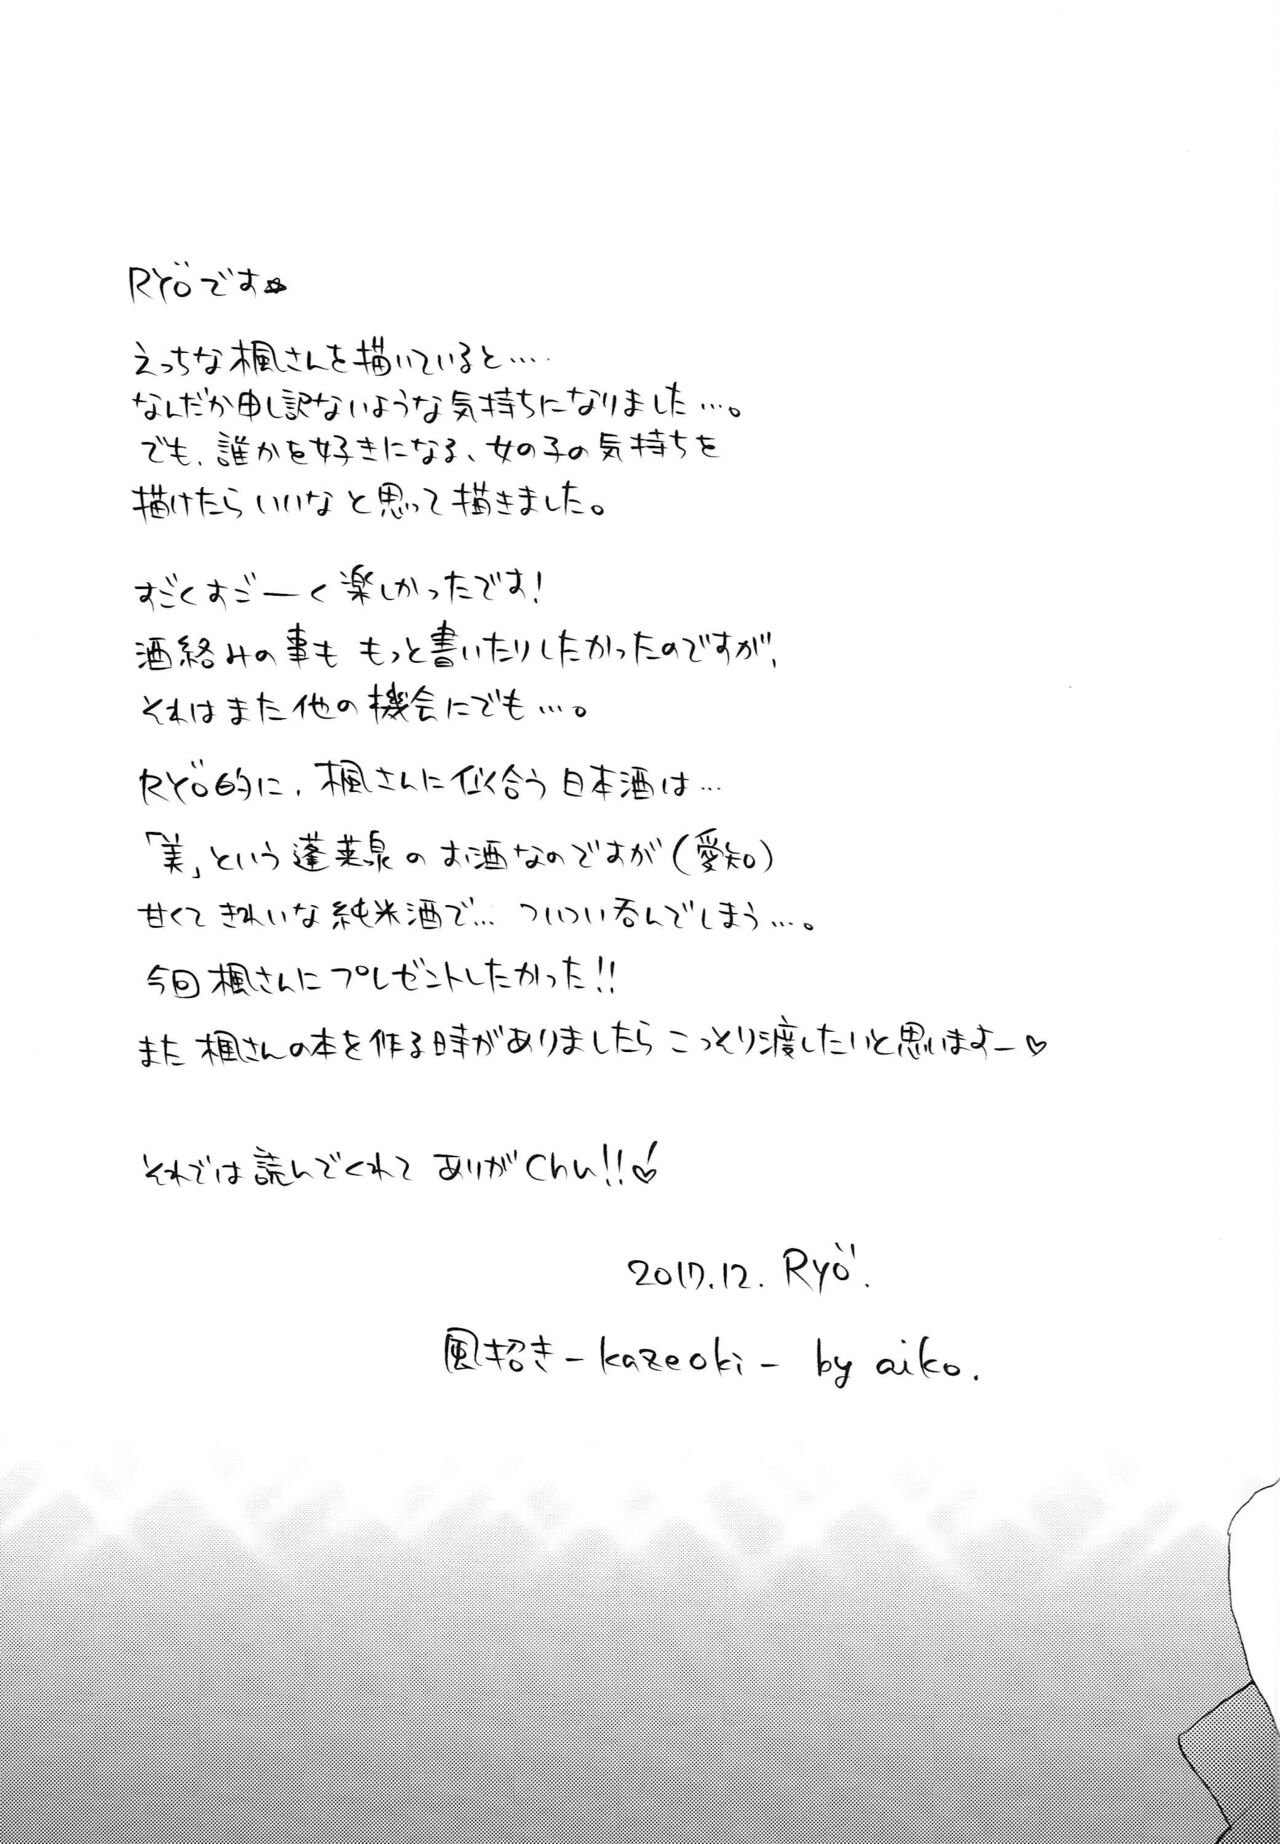 Ryöです☆
えっちな楓さんを描いていると….
なんだか申し訳ないような気持ちになりました…。
でも、誰かを好きになる、女の子の気持ちを
描けたらいいなと思って描きました。
すごくすごーく楽しかったです!
酒絡みの事も もっと書いたりしたかったのですが、
それはまた他の機会にでも…。
Ryö的に、楓さんに似合う日本酒は…
「美」という蓬莱泉のお酒なのですが(愛知)
甘くてきれいな純米酒で… ついつい呑んでしまう…。
今回楓さんにプレゼントしたかった!!
また楓さんの本を作る時がありましたら こっそり渡したいと思いますー♡
それでは読んでくれて ありがChu!!♡
2017.12. Ryö.
風招き-kazeoki- by aiko.